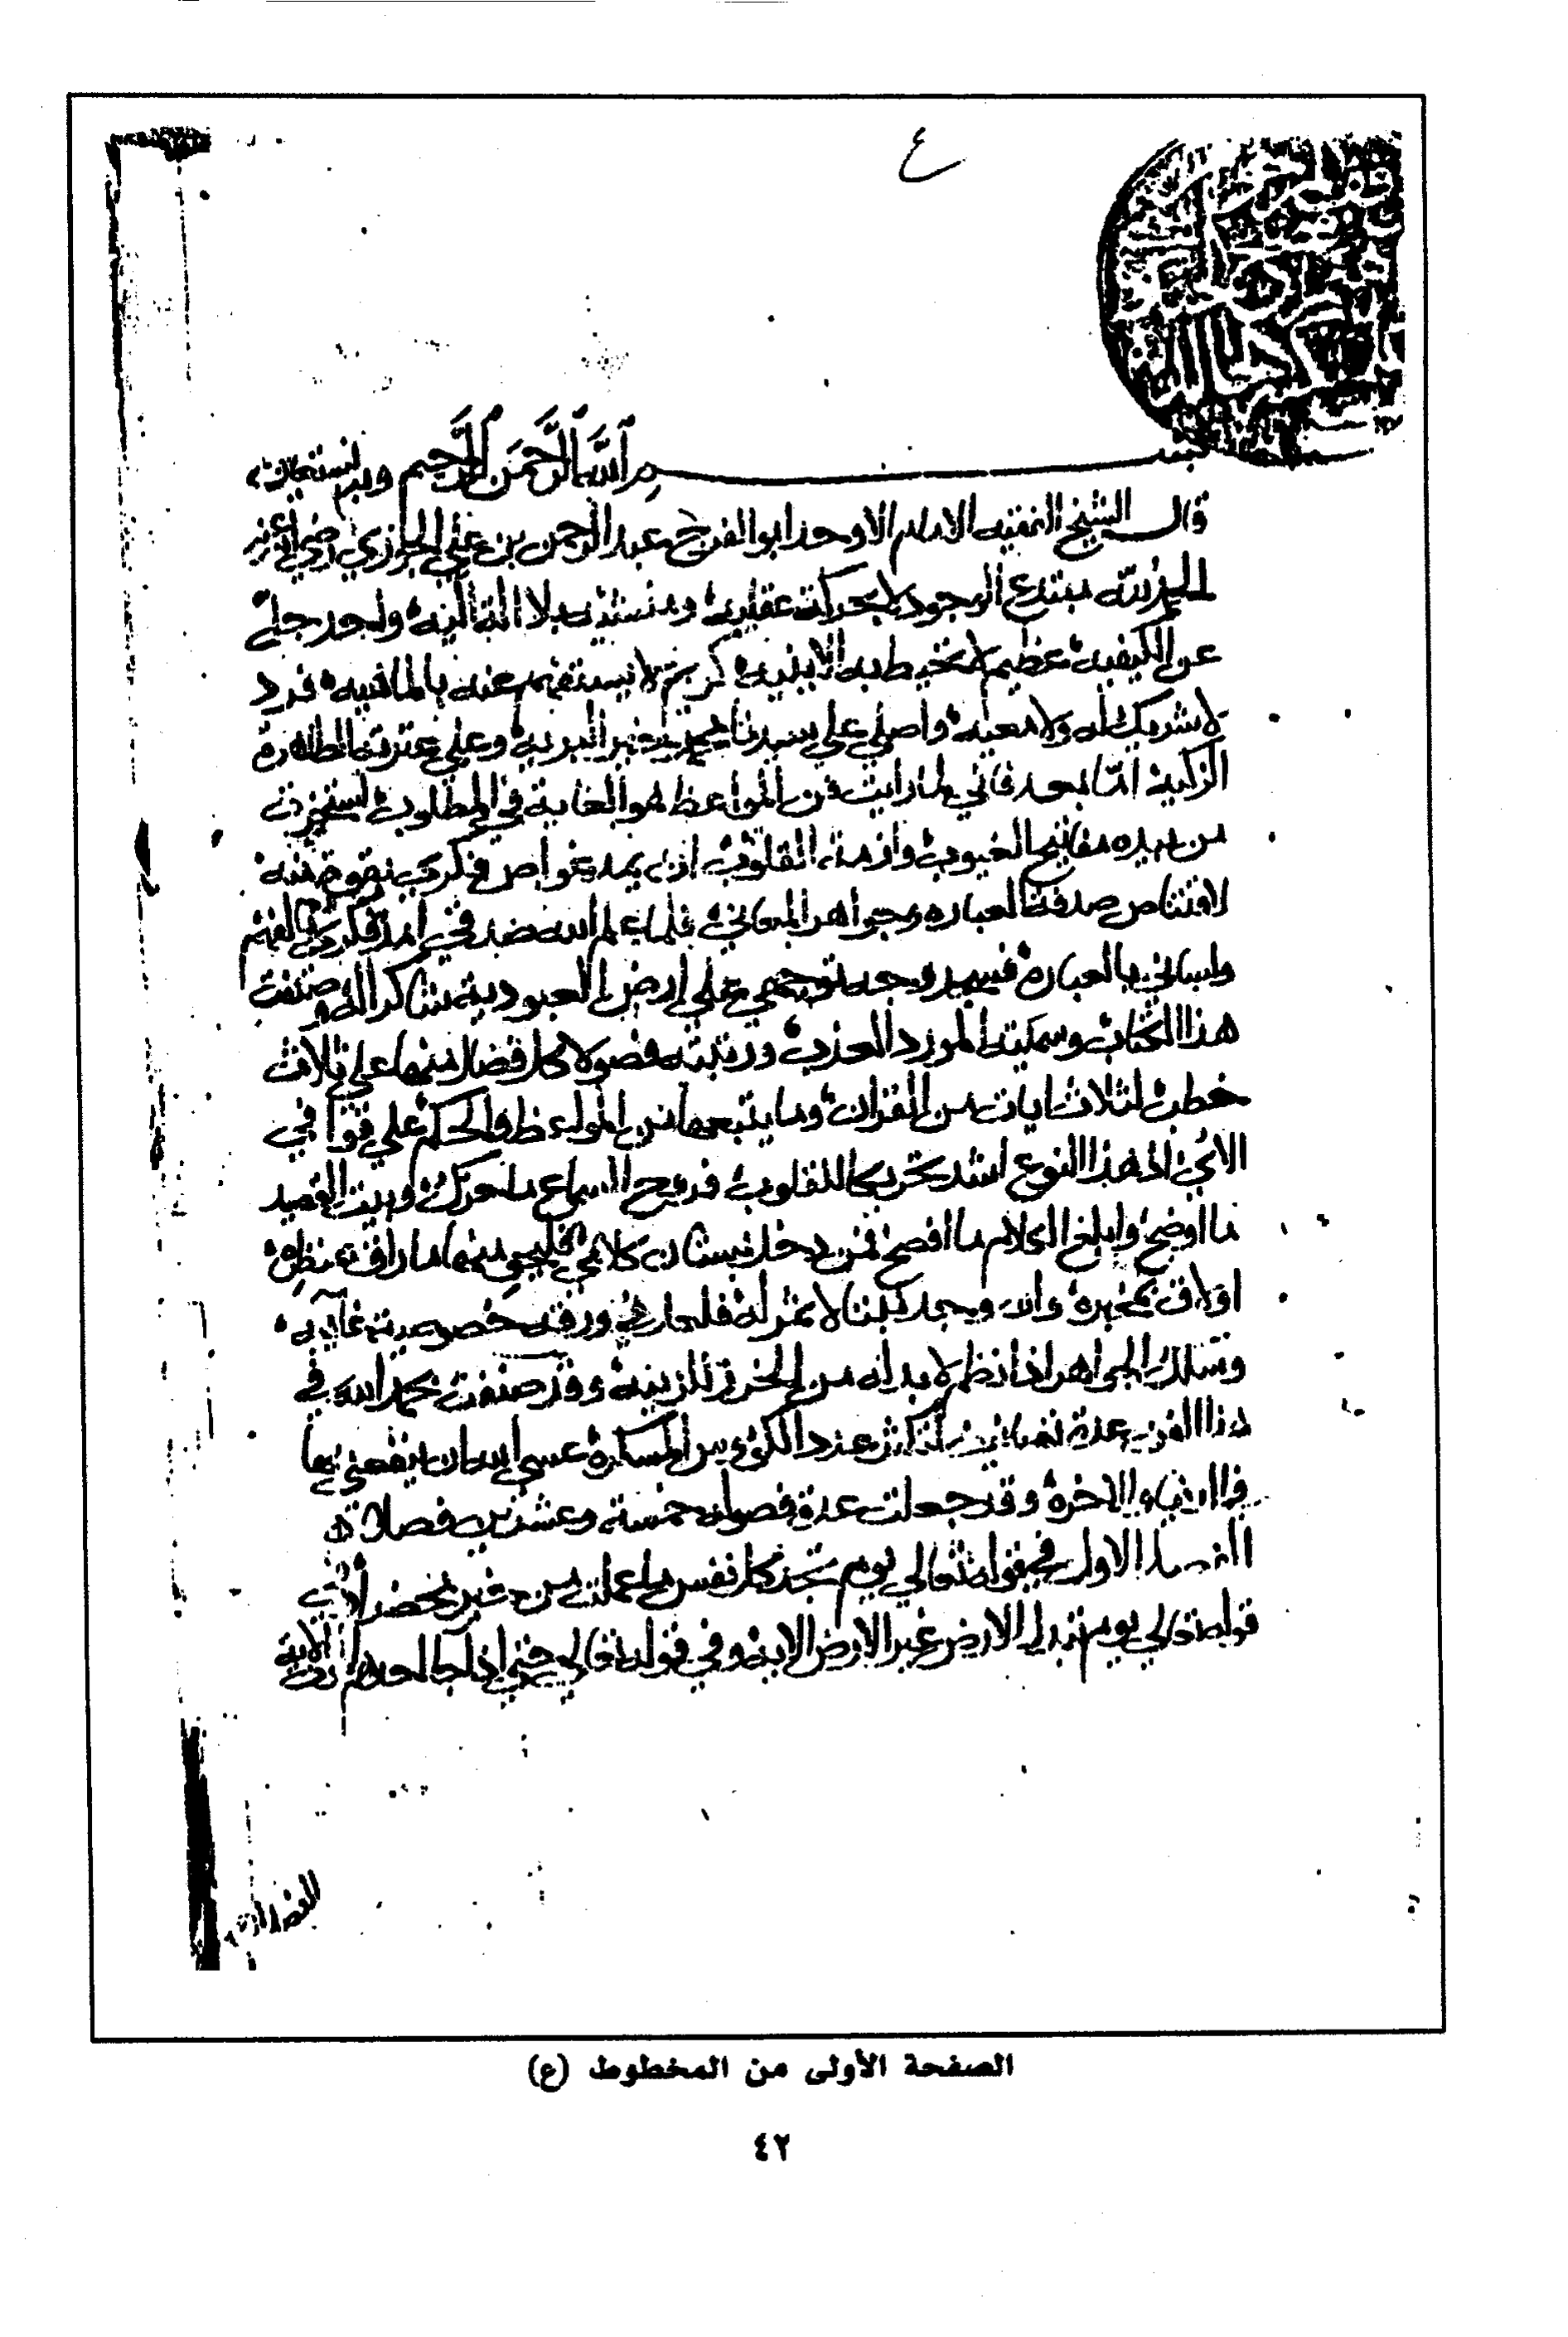 ع
بسم الله الرحمن الرحيم وبه نستعين
قال الشيخ الفقيه الامام الاوحد ابو الفرج عبد الرحمن بن علي الجوزي رضي الله عنه
الحمد لله مبتدع الوجود لا بحركات عقلية ومنشيه بلا الة الية واحد جل
عن الكيفية عظيم لا تحيط به الاينية كريم لا يستفهم عنه بالماهية فرد
لا شريك له ولا معية واصلي على سيدنا محمد خير البرية وعلى عترته الطاهرة
الزكية اما بعد فاني لما رايت فن المواعظ هو الغاية في المطلوب استخرت
من بيده مفاتيح الغيوب وازمة القلوب ان يمد غواص فكري بقوة منه
لاقتناص صدف العبارة وجواهر المعاني فلما علم الله صدقي امد فكري بالفهم
ولساني بالعبارة فسجد وجه توجهي على ارض العبودية شاكرا لله وصنفت
هذا الكتاب وسميته المورد العذب ورتبته فصولا كل فصل منها على ثلاث
خطب لثلاث ايات من القران وما يتبعها من المواعظ والحكم على قوافي
الاي اذ هذا النوع اشد تحريكا للقلوب فروح السماع ما حرك وبيت القصيد
ما اوضح وابلغ الكلام ما افصح فمن دخل بستان كلامي فليجن منها ما راق منظره
او لاق مخبره وان وجد نبتا لا ثمر له فلعارض ورقه خصوصية غايبه
وسلك الجواهر اذا نظم لا بد له من الخرز للزينة وقد صنفت بحمد الله في
هذا الفن عدة تصانيف عسى الله ان ينفعني بها
في الدنيا والاخرة وقد جعلت عدة فصوله خمسة وعشرين فصلا
الفصل الاول في قوله تعالى يوم تجد كل نفس ما عملت من خير محضرا وفي
قوله تعالى يوم تبدل الارض غير الارض الاية وفي قوله تعالى حتى اذا جا احدهم الموت الاية
الصفحة الأولى من المخطوط (ع)
٤٢